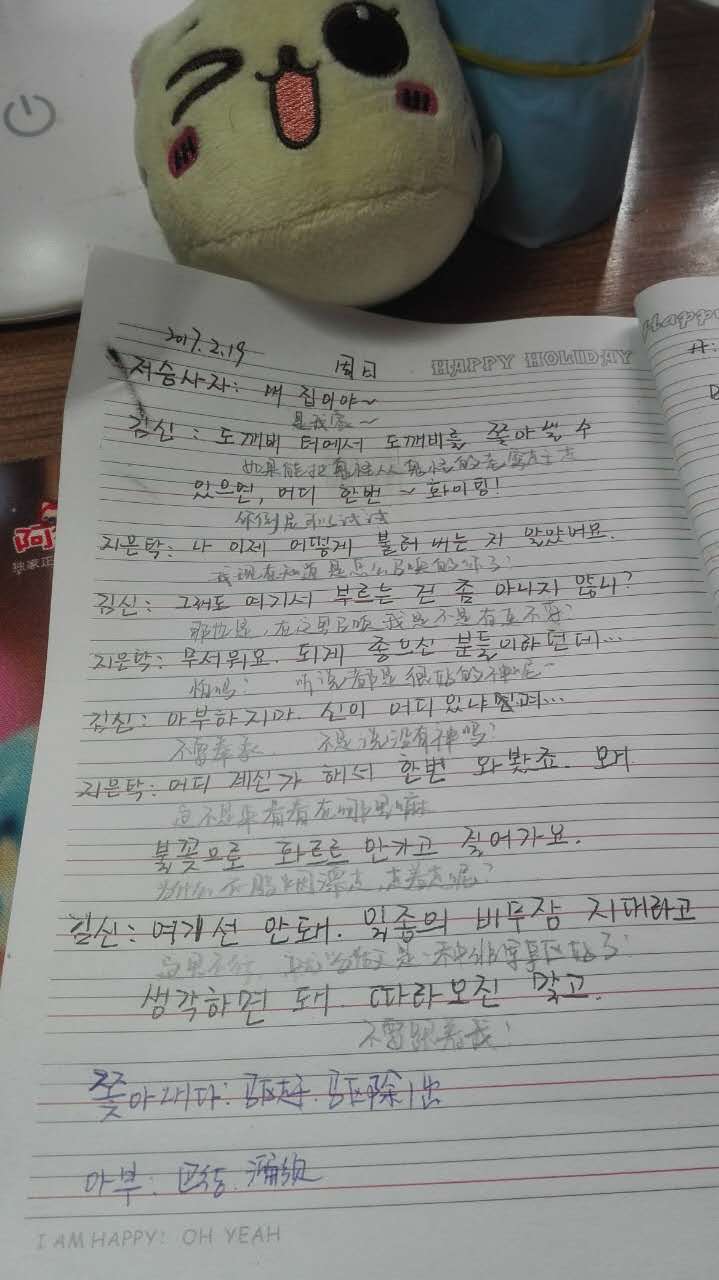 2017.2.19 周日
HAPPY HOLIDAY
저승사자: 내 집이야~
是我家~
김신: 도깨비 터에서 도깨비를 쫓아낼 수
如果能把鬼怪从鬼怪的
있으면, 어디 한번 ~ 화이팅!
你倒是可以试试
지은탁: 나 이제 어떻게 불러 내는 지 알았어요.
我现在知道是怎么召唤的你了!
김신: 그래도 여기서 부르는 건 좀 아니지 않니?
那也是,在这里召唤我是不是有点不好?
지은탁: 무서워요. 되게 좋으신 분들이라던데...
怕吗? 听说都是很好的神呢~
김신: 아부하지마. 신이 어디 있냐며...
不要奉承. 不是说没有神吗?
지은탁: 어디 계신가 해서 한번 와봤죠. 모거
这不是来看看在哪里嘛
불꽃으로 화르르 안가고 걸어가요.
为什么不用火因漂走,走着走呢?
김신: 여기선 안돼. 일종의 비무장 지대라고
这里不行, 是一种非军事区好了!
생각하면 돼. 따라오진 말고.
不要跟着我!
쫓아내다: 驱赶. 驱除出
아부: 巴结.
I AM HAPPY! OH YEAH